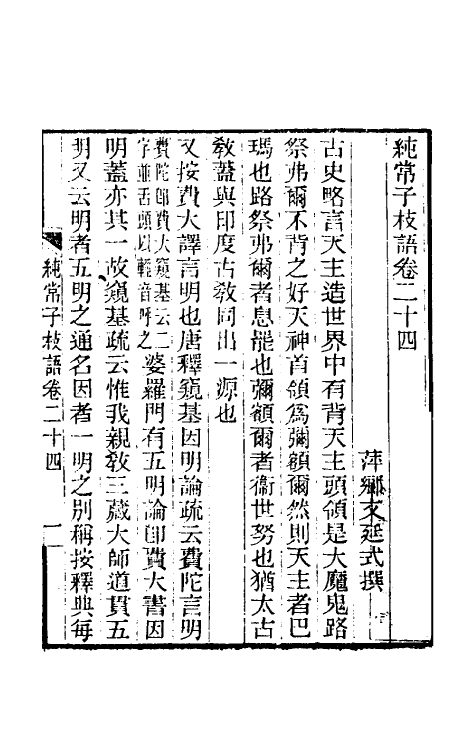 純常子枝語卷二十四
萍鄉文廷式撰
古史略言天主造世界中有背天主頭領是大魔鬼路
祭弗爾不背之好天神首領為彌額爾然則天主者巴
瑪也路祭弗爾者息罷也彌額爾者衞世努也猶太古
敎蓋與印度古敎同出一源也
又按費大譯言明也唐釋窺基因明論疏云費陀言明
費陀卽費大窺基云二
字並舌頭以輕音呼之
婆羅門有五明論卽費大書因
明蓋亦其一故窺基疏云惟我親敎三藏大師道貫五
明又云明者五明之通名因者一明之别稱按釋典每
純常子枝語卷二十四
一